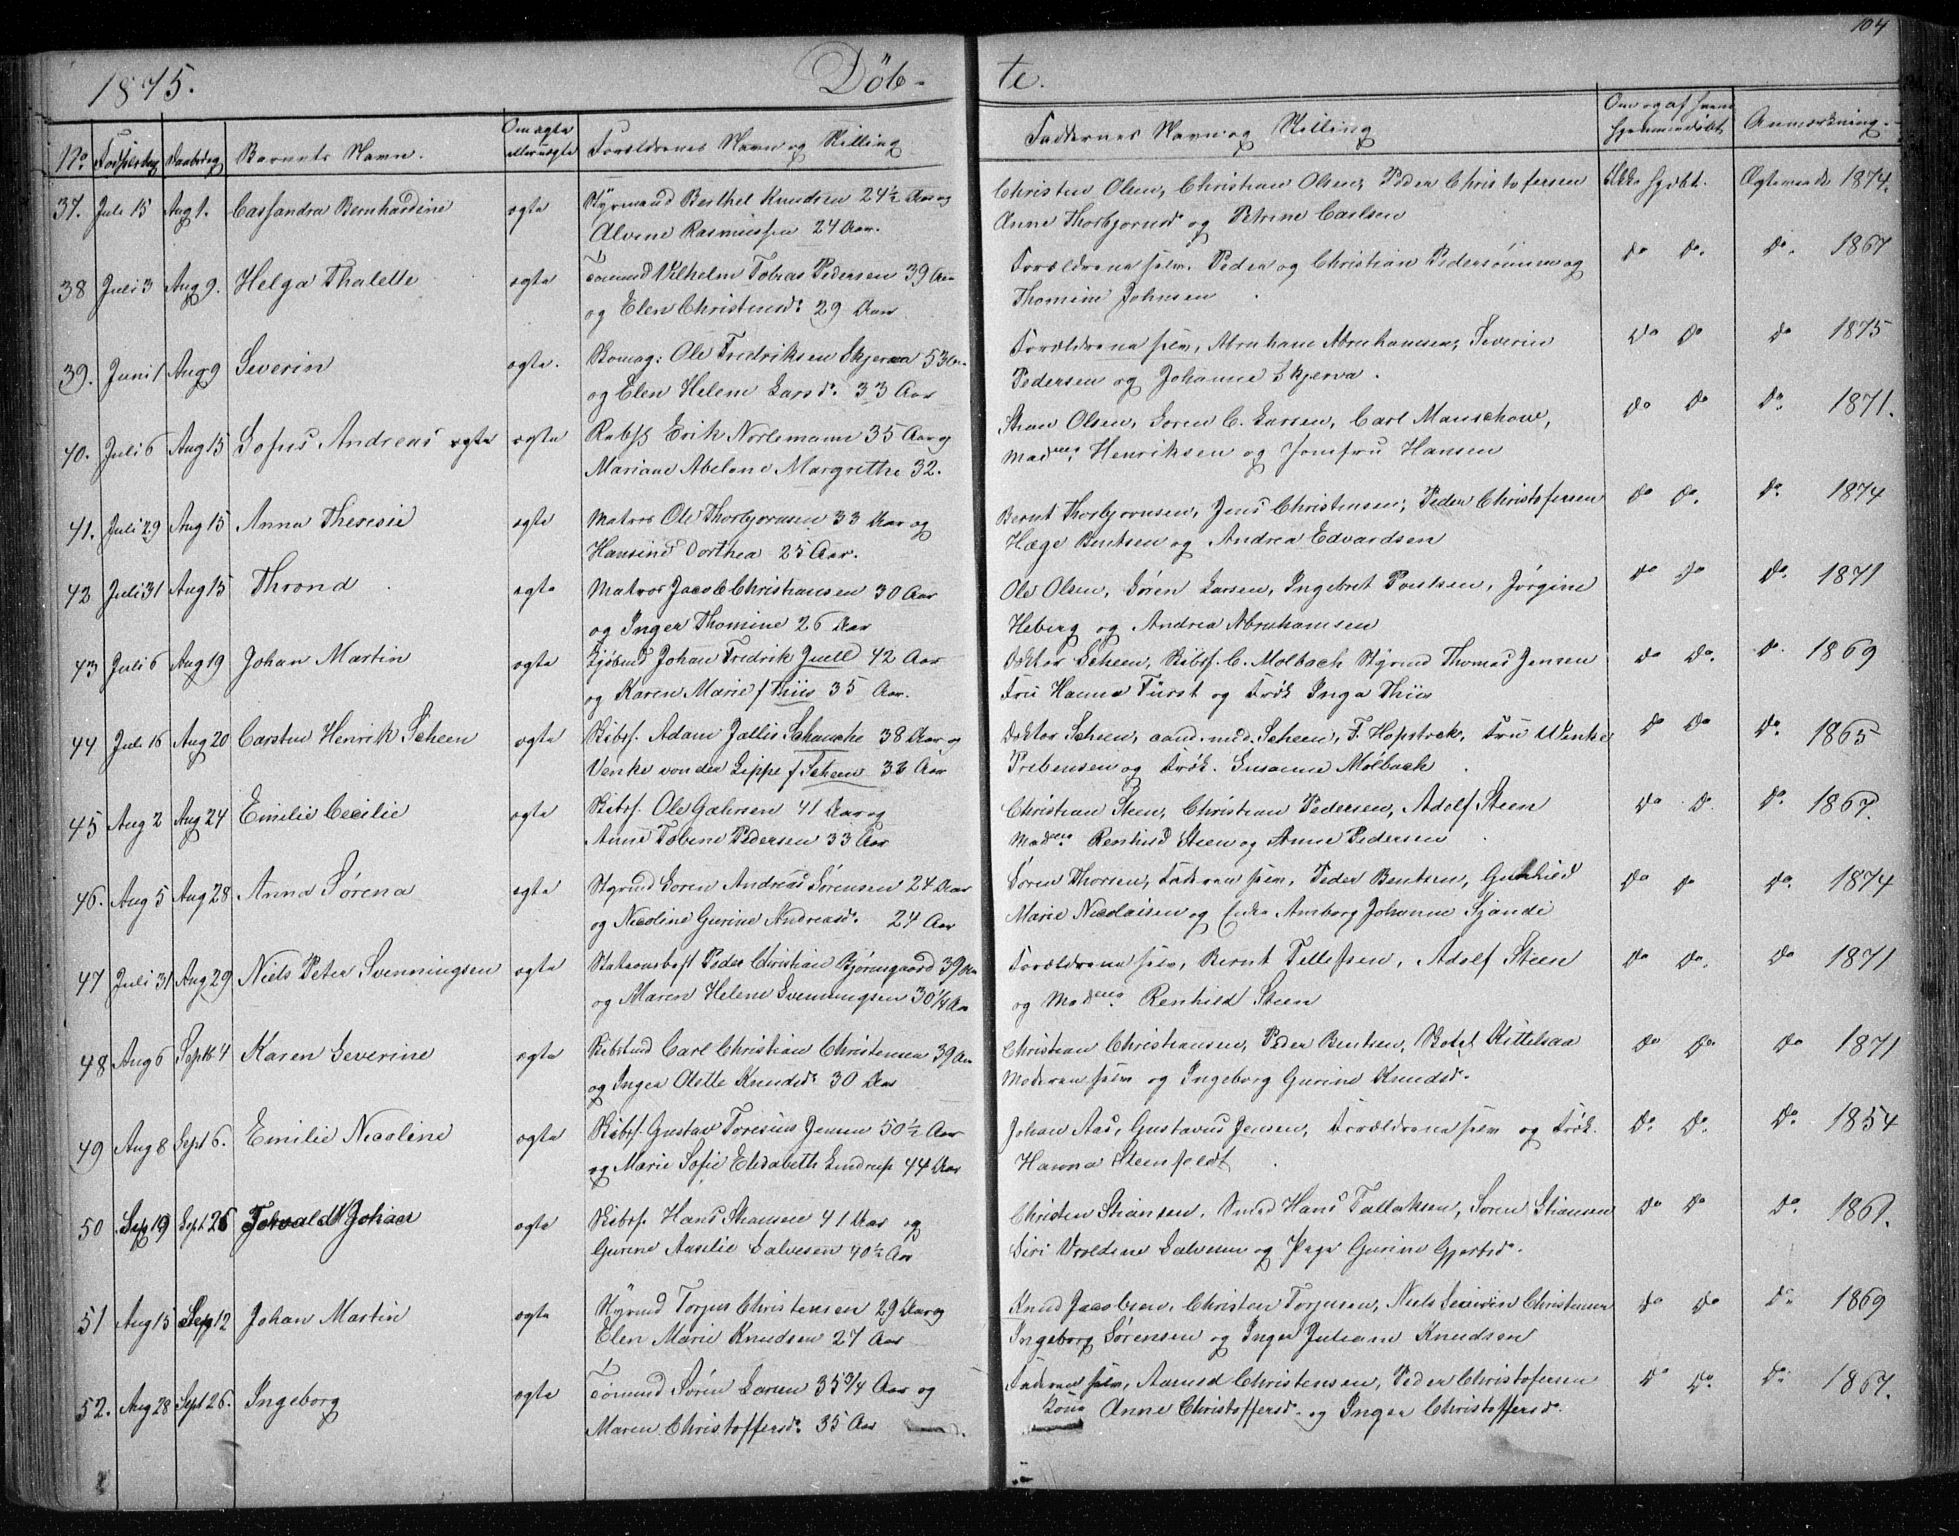 104
1875. Døb- te.
No Fødselsdag Daabsdag Barnets Navn. Om ægte eller uægte Forældrenes Navn og Stilling Faddernes Navn og Stilling Om og af hvem hjemmedøbt Anmærkning.
37. Juli 15 Aug 1. Cassandra Bernhardine ægte Styrmand Berthel Knudsen 24½ Aar og Christen Olsen, Christian Olsen, Peder Christofersen Ikke hjdbt. Ægteviede 1874.
Alvine Rasmussen 24 Aar. Anne Thorbjørnsd. og Petrine Carlsen
38 Juli 3 Aug 9. Helga Thalette ægte Tømmd Vilhelm Tobias Pedersen 39 Aar Forældrene selv. Peder og Christian Pedersønner og Do Do. Do. 1867
og Elen Christensd: 29 Aar Thomine Johnsen
39. Juni 1 Aug 9 Severin ægte. Ole Fredriksen Skjerva 53 Aar Forældrene selv, Abraham Abrahamsen, Severin Do Do Do 1875
og Elen Helene Larsd: 33 Aar Pedersen og Johanne Skjerva.
40. Juli 6 Aug 15 Sofus Andreas ægte ægte Erik Norlemann 35 Aar og Stian Olsen, Soren C. Larsen, Carl Manschow, Do Do Do. 1871.
Mariane Abelone Margrethe 32. Madme. Henriksen og Jomfru Hansen
41. Juli 29 Aug 15 Anna Theresie ægte Matros Ole Thorbjørnsen 33 Aar og Bernt Thorbjørnsen, Jens Christensen, Peder Christofersen Do Do. Do 1874
Hansine Dorthea 25 Aar. Hæge Bentsen og Andrea Edvardsen
42 Juli 31 Aug 15 Thrond ægte Matros Jacob Christiansen 30 Aar Ole Olsen, Sören Larsen, Ingebret Poulsen, Jörgine Do Do Do. 1871
og Inger Thomine 26 Aar Heberg og Andrea Abrahamsen
43 Juli 6 Aug 19 Johan Martin ægte Johan Fredrik Juell 42 Aar Doktor Scheen, Skibsf. C. Molbach Styrmd Thomas Jensen Do Do. Do. 1869
og Karen Marie f Thiis 35 Aar. Fru Hanna Fürst og Frøk Inga Thiis
44 Juli 16 Aug 20 Carsten Henrik Scheen ægte Skibsf. Adam Jallis Schanche 38 Aar og Doktor Scheen, cand. med. Scheen, F. Hopstock, Fru Wenke Do Do Do. 1865
Venke von der Lippe f Scheen 38 Aar Prebensen og Frøk. Susanne Mölbach
45 Aug 2 Aug 24 Emilie Cecilie ægte Skibsf. Ole Gahrsen 41 Aar og Christian Steen, Christian Pedersen, Adolf Steen Do Do. Do. 1867.
Anne Tobine Pedersen 33 Aar Madme. Renhild Steen og Anne Pedersen
46. Aug 5 Aug 28 Anna Sørena ægte Styrmd Soren Andreas Sørensen 24 Aar Søren Thorsen, Faderen selv, Peder Bentsen, Gunhild Do Do Do. 1874
og Nicoline Gurine Andreasd. 24 Aar Marie Nicolaisen og Enke Aasborg Johanne
47 Juli 31 Aug 29 Niels Peter Svenningsen ægte Peder Christian Bjørnsgaard 39 Aar Forældrene selv, Bernt Tellefsen, Adolf Steen Do Do. Do 1871
og Maren Helene Svenningsen 30¼ Aar og Madme. Renhild Steen
48 Aug 6 Septb 4 Karen Severine ægte Carl Christian Christensen 39 Aar Christian Christiansen, Peder Bentsen, Botel Kittelsaa Do Do Do 1871
og Inger Olette Knudsd. 30 Aar Moderen selv og Ingeborg Gurine Knudsd.
49 Aug 8 Sept 6. Emilie Nicoline ægte Skibsf. Gustav Toresius Jensen 50½ Aar Johan Aas, Gustavus Jensen, Forældrene selv og Frøk. Do Do. Do 1854
og Marie Sofie Elisabeth Lindrup 44 Aar Hanna Steenfeldt
50 Sep 19 Sept 26 Torvald Johan ægte Skibsf. Hans Stiansen 41 Aar og Christen Stiansen, Smed Hans Tallaksen, Søren Stiansen Do Do Do. 1861.
Gurine Amelie Salvesen 40½ Aar Siri Salvesen og Gurine Gjertsd.
51 Aug 15 Sep 12 Johan Martin ægte Styrmd Torjus Christensen 29 Aar og Knud Jacobsen, Christen Torjusen, Niels Severin Christensen Do Do Do 1869
Elen Marie Knudsen 27 Aar Ingeborg Sørensen og Inger Juliane Knudsen
52. Aug 28 Sept 26. Ingeborg ægte Tømmd Sørén Larsen 35¾ Aar og Faderen selv, Aanud Christensen, Peder Christofersen Do Do. Do 1867.
Maren Christoffersd: 35 Aar Kone Anne Christoffersd. og Inger Christoffersd.